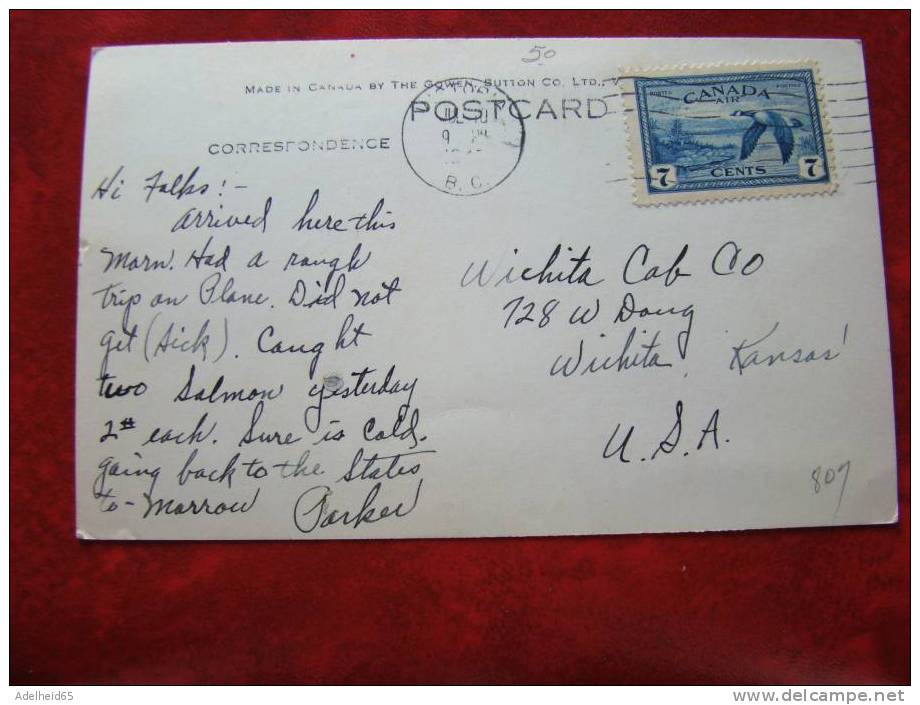 50
MADE IN CANADA BY THE GOWEN, SUTTON CO. LTD., V
POSTCARD
CORRESPONDENCE
9
B. C.
POSTES POSTAGE
CANADA
AIR
7 CENTS 7
Hi Folks! -
arrived here this
Morn. Had a rough
trip on Plane. Did not
get (sick). Caught
two Salmon yesterday
2# each. Sure is Cold.
going back to the States
to-Morrow Parker
Wichita Cab Co
728 W Doug
Wichita, Kansas
U.S.A.
807
Adelheid65
www.delcampe.net